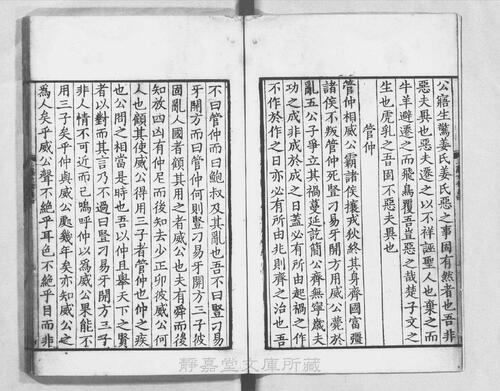 公寤生驚姜氏姜氏惡之事固有然者也吾非
惡夫異也惡夫遷之以不祥誣聖人也棄之而
牛羊避遷之而飛鳥覆吾豈惡之哉楚子文之
生也虎乳之吾固不惡夫異也
管仲
管仲相威公霸諸侯攘戎狄終其身齊國富彊
諸侯不叛管仲死豎刁易牙開方用威公薨於
亂五公子爭立其禍蔓延訖簡公齊無寧歲夫
功之成非成於成之日蓋必有所由起禍之作
不作於作之日亦必有所由兆則齊之治也吾
不曰管仲而曰鮑叔及其亂也吾不曰豎刁易
牙開方而曰管仲何則豎刁易牙開方三子彼
固亂人國者顧其用之者威公也夫有舜而後
知放四凶有仲尼而後知去少正卯彼威公何
人也顧其使威公得用三子者管仲也仲之疾
也公問之相當是時也吾以仲且舉天下之賢
者以對而其言乃不過曰豎刁易牙開方三子
非人情不可近而已嗚呼仲以爲威公果能不
用三子矣乎仲與威公處幾年矣亦知威公之
爲人矣乎威公聲不絶乎耳色不絶乎目而非
靜嘉堂文庫所藏